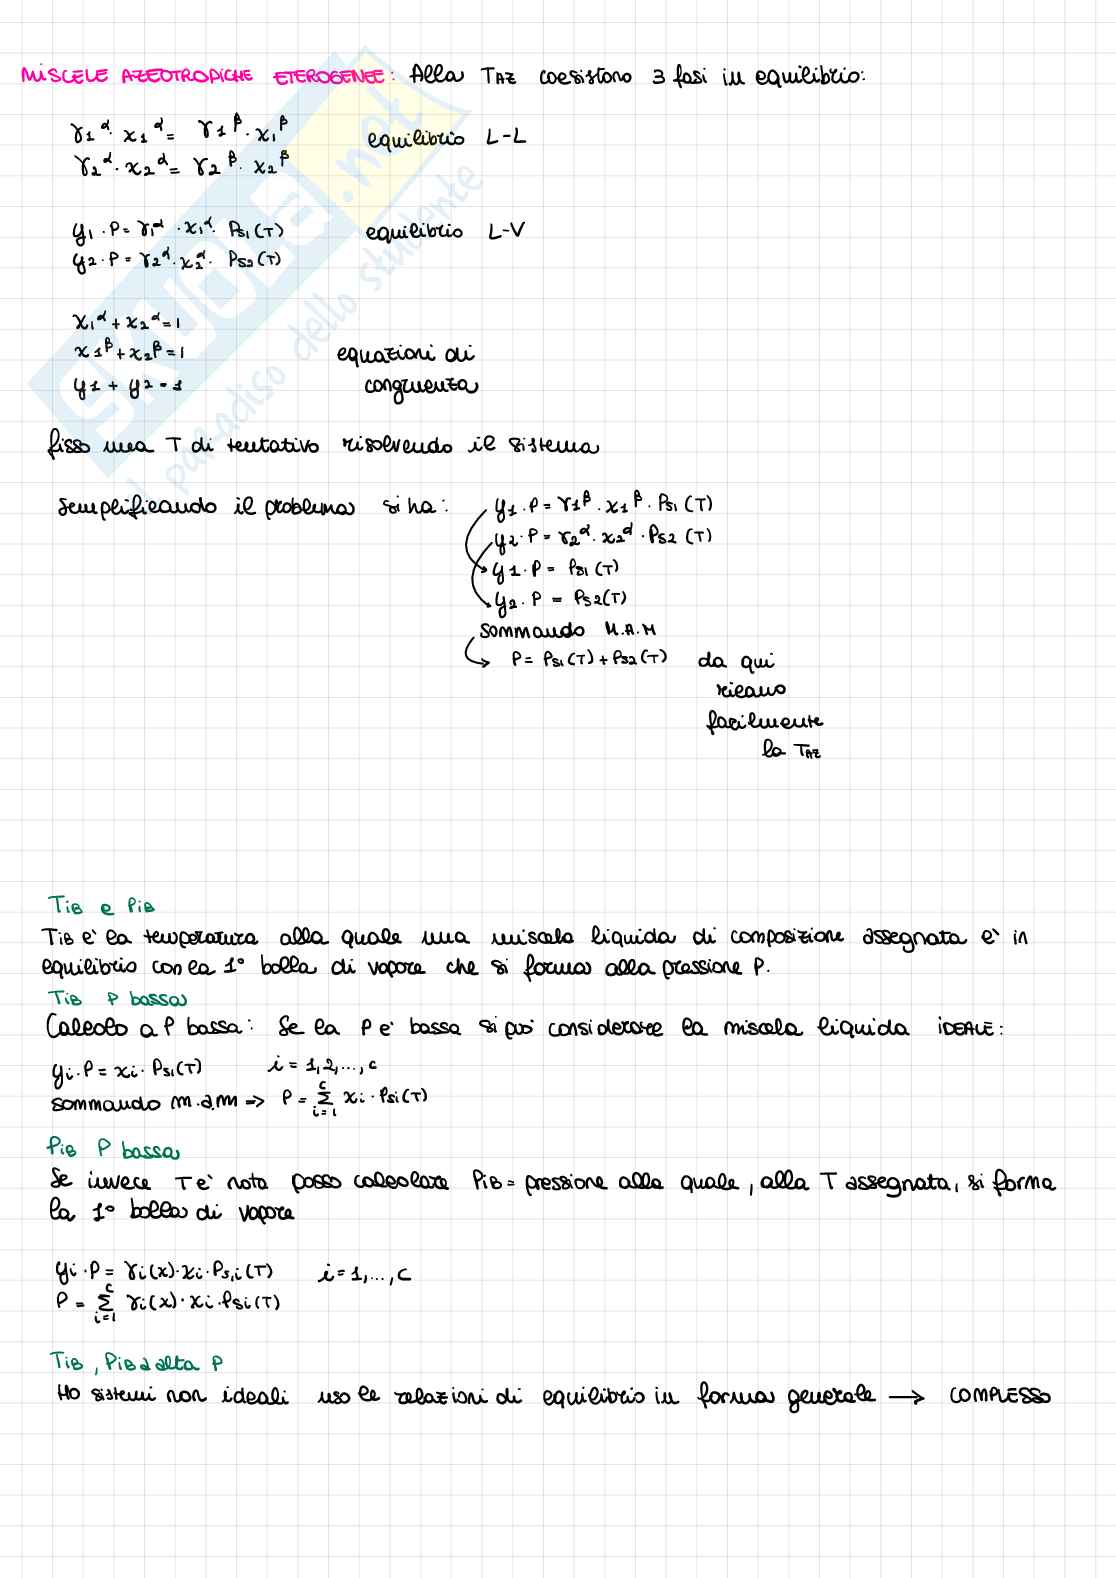 MISCELE AZEOTROPICHE ETEROGENEE: Alla TAZ coesistono 3 fasi in equilibrio:
γ1^α · x1^α = γ1^β · x1^β
equilibrio L-L
γ2^α · x2^α = γ2^β · x2^β
y1 · P = γ1^α · x1^α · PS1(T)
equilibrio L-V
y2 · P = γ2^α · x2^α · PS2(T)
x1^α + x2^α = 1
x1^β + x2^β = 1
equazioni di
y1 + y2 = 1
congruenza
fisso una T di tentativo risolvendo il sistema
semplificando il problema si ha:
y1 · P = γ1^β · x1^β · PS1(T)
y2 · P = γ2^α · x2^α · PS2(T)
y1 · P = PS1(T)
y2 · P = PS2(T)
sommando M.A.M
P = PS1(T) + PS2(T)
da qui
ricavo
facilmente
la TAZ
TiB e PiB
TiB e' la temperatura alla quale una miscela liquida di composizione assegnata e' in
equilibrio con la 1° bolla di vapore che si forma alla pressione P.
TiB P bassa
Calcolo a P bassa: Se la P e' bassa si può considerare la miscela liquida IDEALE:
yi · P = xi · PSi(T) i = 1,2,...,c
sommando m.a.m => P = Σ_{i=1}^{c} xi · PSi(T)
PiB P bassa
Se invece T e' nota posso calcolare PiB = pressione alla quale, alla T assegnata, si forma
la 1° bolla di vapore
yi · P = γi(x) · xi · PS,i(T) i = 1,...,c
P = Σ_{i=1}^{c} γi(x) · xi · PSi(T)
TiB, PiB ad alta P
Ho sistemi non ideali uso le relazioni di equilibrio in forma generale → COMPLESSO
SKUOLA.net
il paradiso dello studente